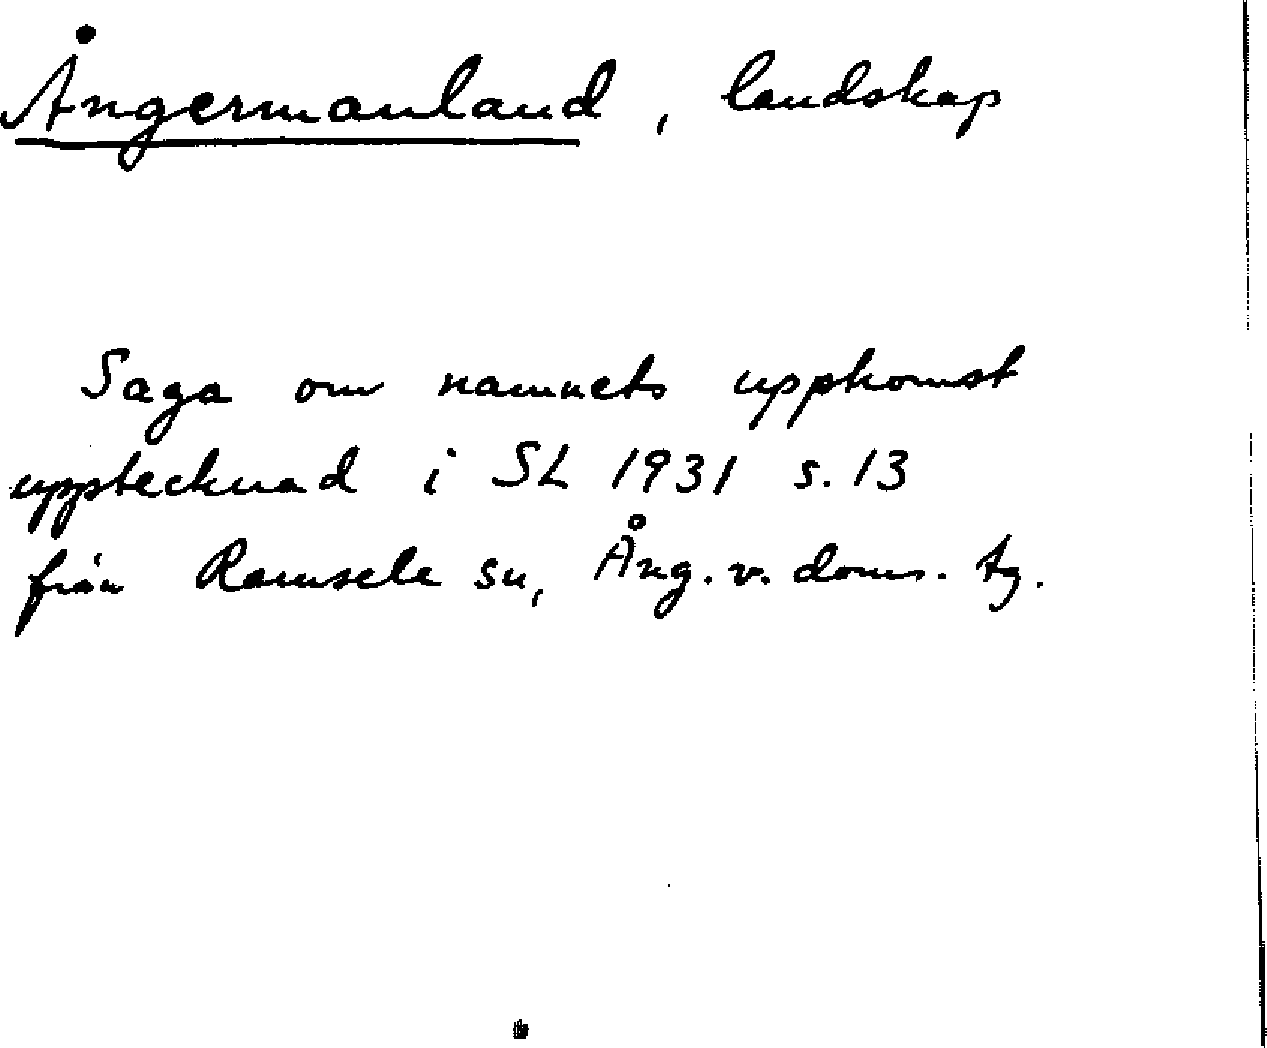 Ångermanland, landskap
Saga om namnets uppkomst
upptecknad i SL 1931 s. 13
från Ramsele sn, Ång. v. doms. tg.